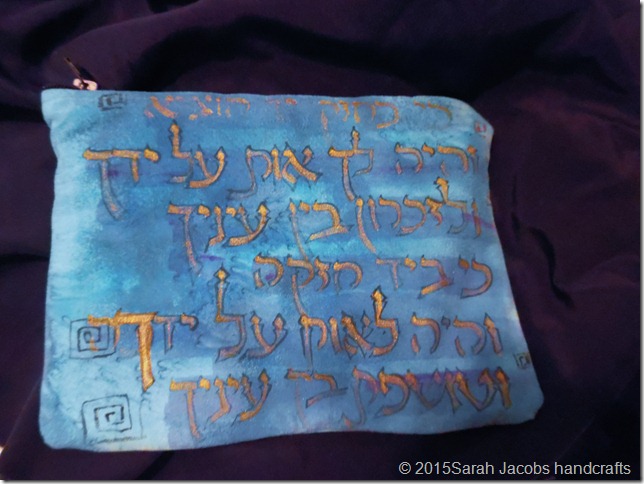 בחזק יד הוציא
והיה לך אות על ידך
ולזכרון בין עניך
כי ביד חזקה
והיה לאות על ידך
וטוטפת בין עניך
© 2015Sarah Jacobs handcrafts